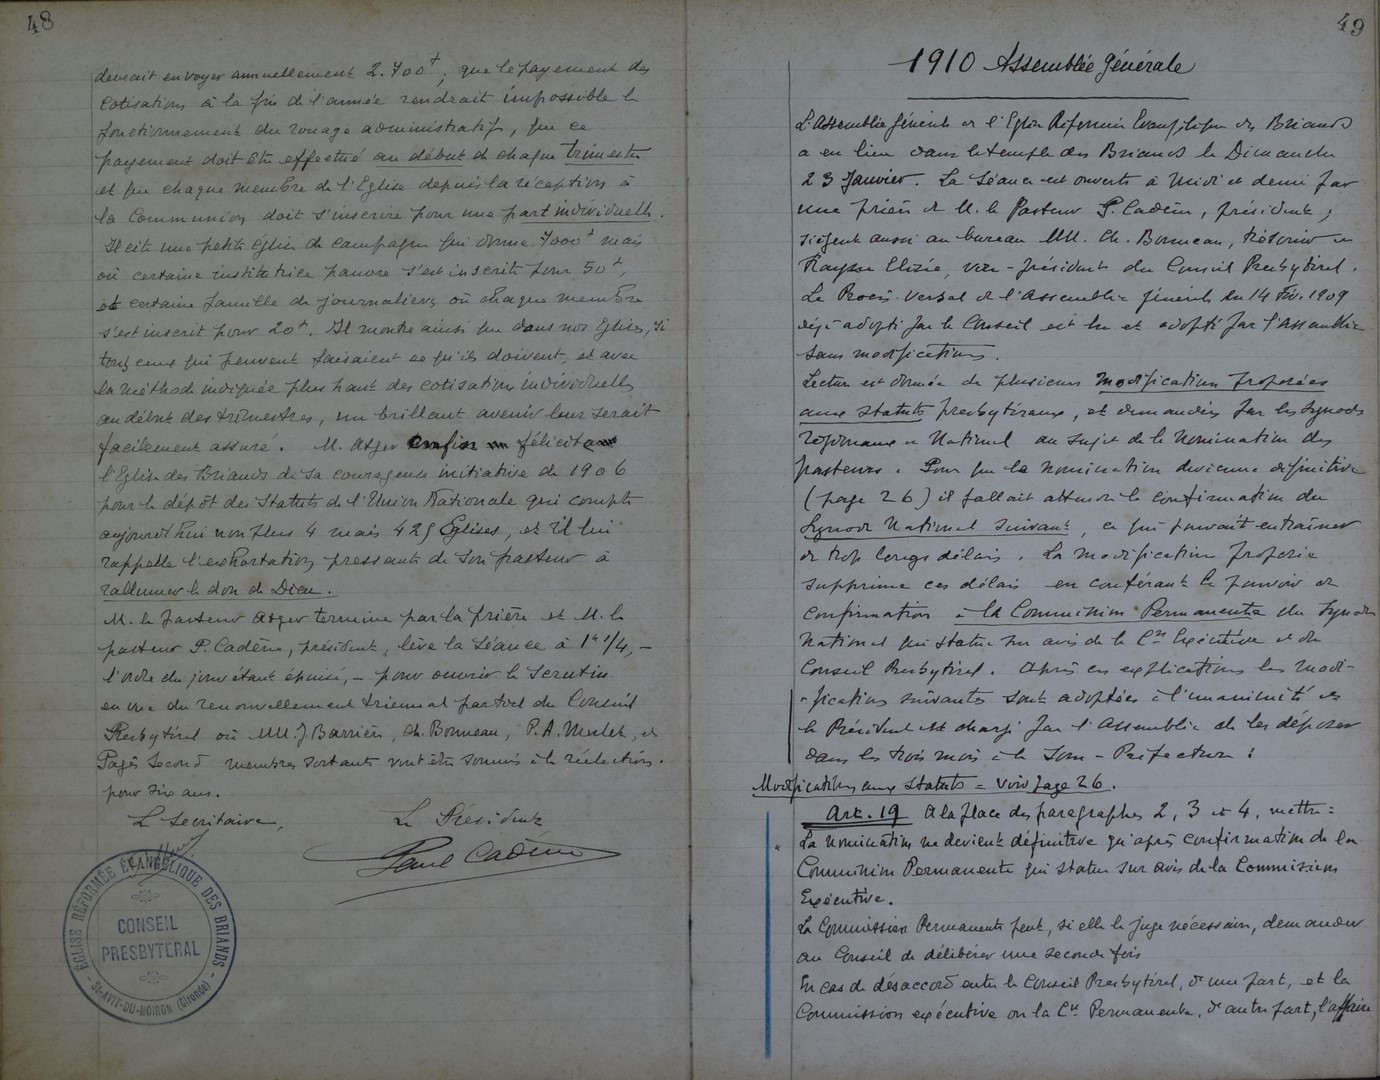 48
devrait envoyer annuellement 2.700f, que le payement des
cotisations à la fin de l'année rendrait impossible le
fonctionnement du rouage administratif, que ce
payement doit être effectué au début de chaque trimestre
et que chaque membre de l'Eglise depuis la réception à
la Communion doit s'inscrire pour une part individuelle.
Il cite une petite église de campagne qui donne 7000f mais
où certaine institutrice pauvre s'est inscrite pour 50f,
et certaine famille de journaliers où chaque membre
s'est inscrit pour 20f. Il montre ainsi que dans nos Eglises, si
tous ceux qui peuvent faisaient ce qu'ils doivent, et avec
la méthode indiquée plus haut des cotisations individuelles
au début des trimestres, un brillant avenir leur serait
facilement assuré. M. Atger félicite
l'Eglise des Briands de sa courageuse initiative de 1906
pour le dépôt des Statuts de l'Union Nationale qui compte
aujourd'hui non plus 4 mais 425 Eglises, et il lui
rappelle l'exhortation pressante de son pasteur à
rallumer le don de Dieu.
M. le Pasteur Atger termine par la prière et M. le
pasteur P. Cadène, président, lève la Séance à 1h 1/4, -
l'ordre du jour étant épuisé, - pour ouvrir le Scrutin
en vue du renouvellement triennal partiel du Conseil
Presbytéral où MM. J Barrière, Ch. Bonneau, P.A. et
Pagès Second membres sortants vont être soumis à la réélection.
pour six ans.
Le Secrétaire, Le Président
Paul Cadène
ÉGLISE RÉFORMÉE ÉVANGÉLIQUE DES BRIANDS
CONSEIL
PRESBYTÉRAL
St-AVIT-DU-MOIRON (Gironde)
49
1910 Assemblée Générale
L'Assemblée Générale de l'Eglise Réformée Evangélique des Briands
a eu lieu dans le temple des Briands le Dimanche
23 Janvier. La Séance est ouverte à Midi et demi par
une prière de M. le Pasteur P. Cadène, président;
siègent aussi au bureau MM. Ch. Bonneau, trésorier et
Elisée, vice-président du Conseil Presbytéral.
Le Procès-Verbal de l'Assemblée Générale du 14 Fév. 1909
déjà adopté par le Conseil est lu et adopté par l'Assemblée
sans modifications.
Lecture est donnée de plusieurs modifications proposées
aux statuts presbytéraux, et demandées par les Synodes
régionaux et National au sujet de la Nomination des
pasteurs. Pour que la nomination devienne définitive
(page 26) il fallait attendre la confirmation du
Synode National suivant, ce qui pouvait entraîner
de trop longs délais. La modification proposée
supprime ces délais en conférant le pouvoir de
confirmation à la Commission Permanente du Synode
National qui statue sur avis de la Con Exécutive et du
Conseil Presbytéral. Après ces explications les modi-
-fications suivantes sont adoptées à l'unanimité et
le Président est chargé par l'Assemblée de les déposer
dans les trois mois à la Sous-Préfecture :
Modifications aux statuts = voir page 26.
Art. 19 A la place des paragraphes 2, 3 et 4, mettre :
" La nomination ne devient définitive qu'après confirmation de la
Commission Permanente qui statue sur avis de la Commission
Exécutive.
La Commission Permanente peut, si elle le juge nécessaire, demander
au Conseil de délibérer une seconde fois
En cas de désaccord entre le Conseil Presbytéral, d'une part, et la
Commission exécutive ou la Con Permanente, d'autre part, l'affaire